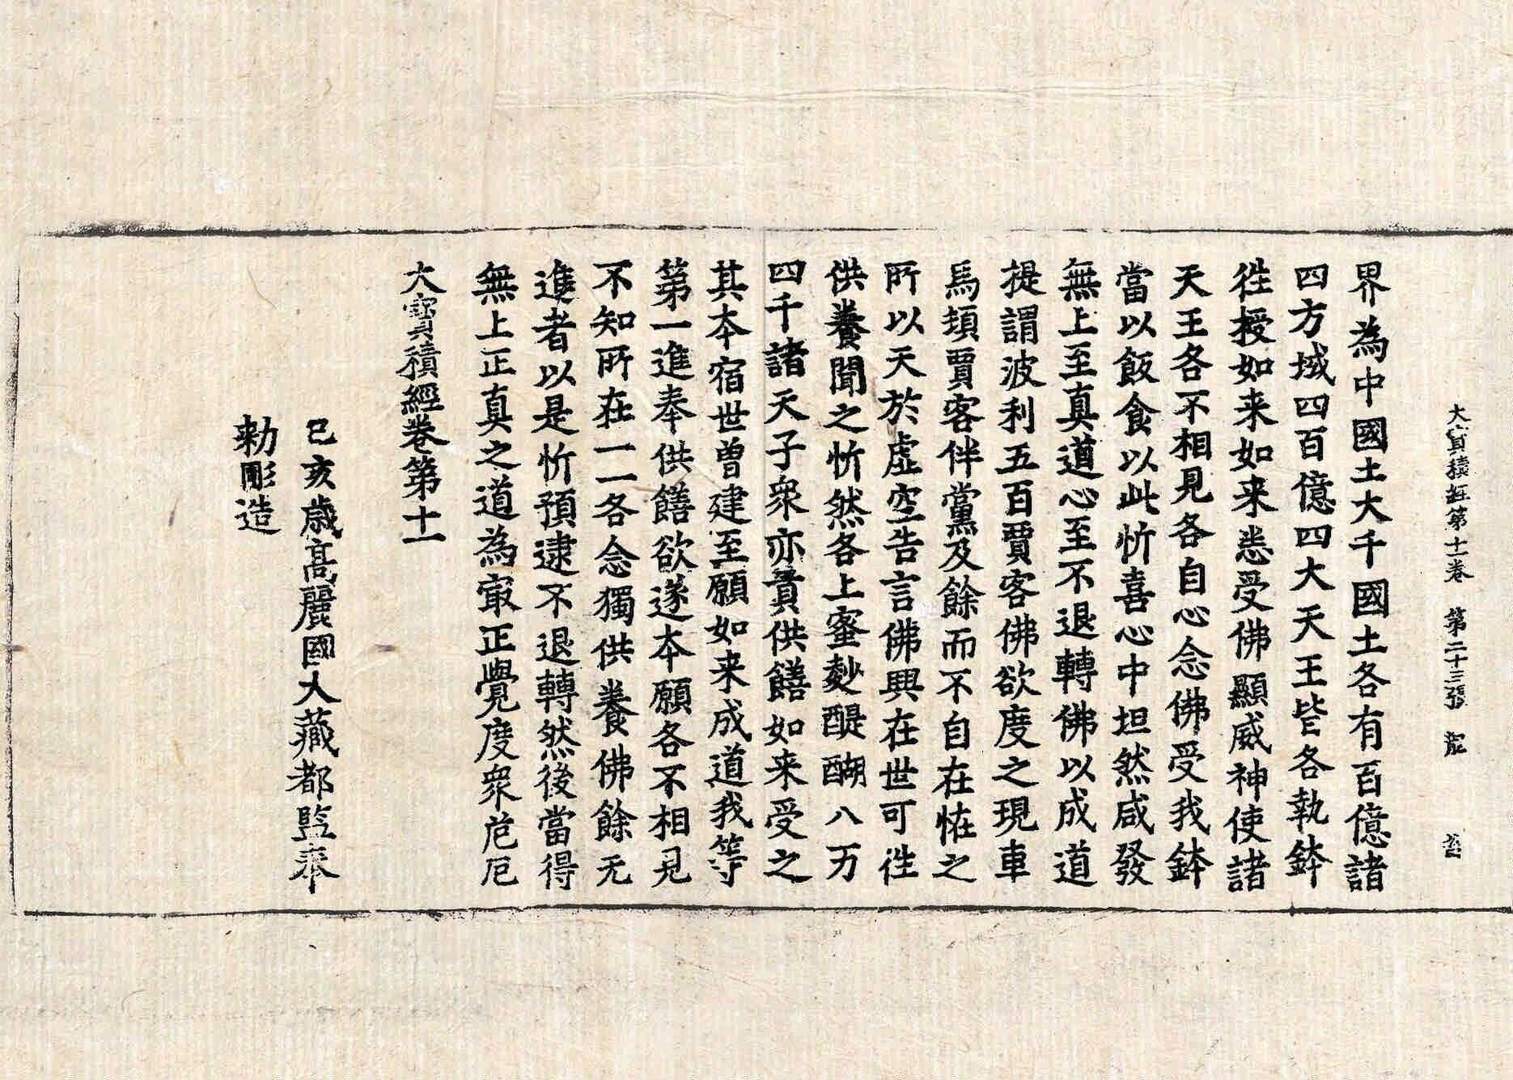 大寶積經第十一卷 第二十三張 龍
界為中國土大千國土各有百億諸
四方域四百億四大天王皆各執鉢
往授如来如来悉受佛顯威神使諸
天王各不相見各自心念佛受我鉢
當以飯食以此忻喜心中坦然咸發
無上至真道心至不退轉佛以成道
提謂波利五百賈客佛欲度之現車
馬頓賈客伴黨及餘而不自在恠之
所以天於虛空告言佛興在世可往
供養聞之忻然各上蜜麨醍醐八万
四千諸天子衆亦賷供饍如来受之
其本宿世曾建至願如来成道我等
第一進奉供饍欲遂本願各不相見
不知所在一一各念獨供養佛餘无
進者以是忻預逮不退轉然後當得
無上正真之道為㝡正覺度衆危厄
大寶積經卷第十一
己亥歳高麗國大藏都監奉
勅彫造